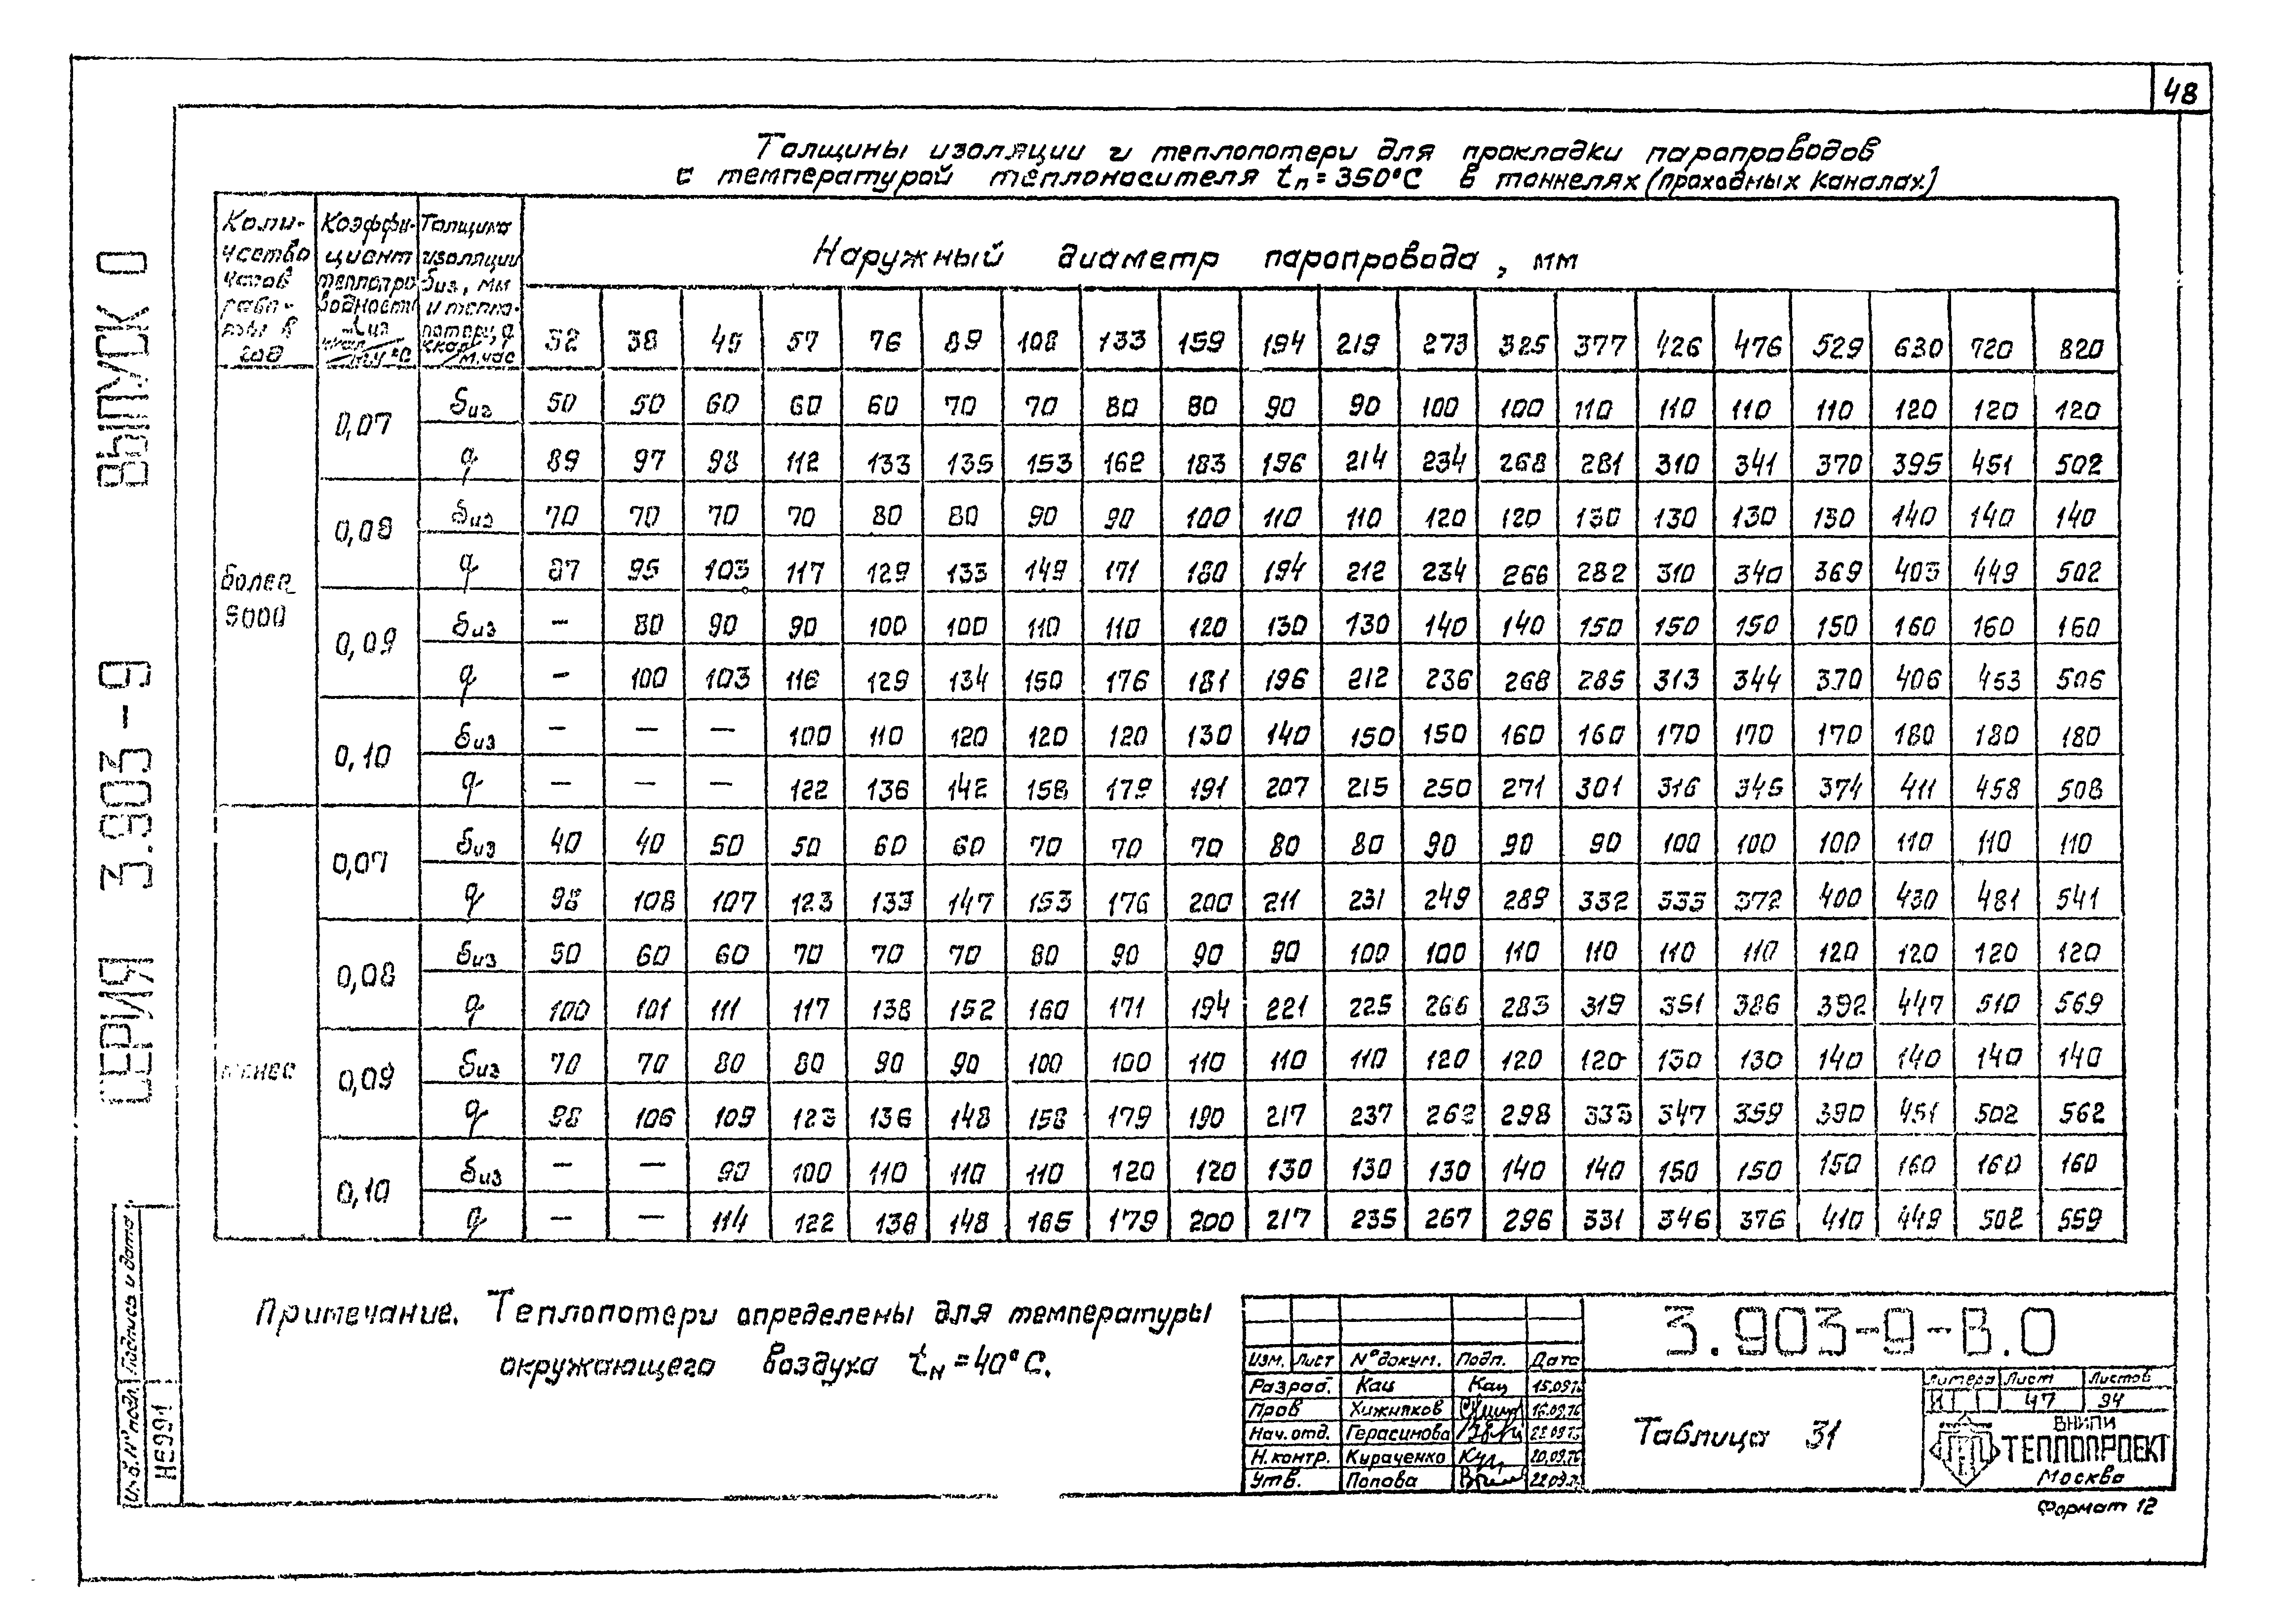 48
Толщины изоляции и теплопотери для прокладки паропроводов
с температурой теплоносителя tп=350°С в тоннелях (проходных каналах)
Коли-чество часов рабо-ты в год
Коэффи-циент теплопро водности λиз ккал/м.ч°С
Толщина изоляции δиз, мм и тепло-потери, q ккал/м.час
Наружный диаметр паропровода, мм
32 38 45 57 76 89 108 133 159 194 219 273 325 377 426 476 529 630 720 820
более 5000
0,07 δиз 50 50 60 60 60 70 70 80 80 90 90 100 100 110 110 110 110 120 120 120
q 89 97 98 112 133 135 153 162 183 196 214 234 268 281 310 341 370 395 451 502
0,08 δиз 70 70 70 70 80 80 90 90 100 110 110 120 120 130 130 130 130 140 140 140
q 87 95 103 117 129 133 149 171 180 194 212 234 266 282 310 340 369 403 449 502
0,09 δиз — 80 90 90 100 100 110 110 120 130 130 140 140 150 150 150 150 160 160 160
q — 100 103 116 129 134 150 176 181 196 212 236 268 285 313 344 370 406 453 506
0,10 δиз — — — 100 110 120 120 120 130 140 150 150 160 160 170 170 170 180 180 180
q — — — 122 136 142 158 179 191 207 215 250 271 301 316 345 374 411 458 508
менее
0,07 δиз 40 40 50 50 60 60 70 70 70 80 80 90 90 90 100 100 100 110 110 110
q 98 108 107 123 133 147 153 176 200 211 231 249 289 332 333 372 400 430 481 541
0,08 δиз 50 60 60 70 70 70 80 90 90 90 100 100 110 110 110 110 120 120 120 120
q 100 101 111 117 138 152 160 171 194 221 225 266 283 319 351 386 392 447 510 569
0,09 δиз 70 70 80 80 90 90 100 100 110 110 110 120 120 120 130 130 140 140 140 140
q 98 106 109 123 136 148 158 179 190 217 237 262 298 333 347 359 390 451 502 562
0,10 δиз — — 90 100 110 110 110 120 120 130 130 130 140 140 150 150 150 160 160 160
q — — 114 122 136 148 165 179 200 217 235 267 296 331 346 376 410 449 502 559
Примечание. Теплопотери определены для температуры
окружающего воздуха tн=40°С.
СЕРИЯ 3.903-9 ВЫПУСК 0
Инв.№ подл. Подпись и дата
НЕ991
3.903-9-В.0
Изм. Лист №докум. Подп. Дата
Разраб. Кац Кац
Пров Хижняков
Нач.отд. Герасимова
Н.контр. Кираченко
Утв. Попова
Таблица 31
Литера Лист Листов
И 47 94
ВНИПИ
ТЕПЛОПРОЕКТ
Москва
Формат 12